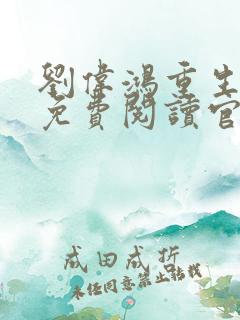 劉偉鴻重生
免費閱讀官
成田成折
未經同意禁止轉載